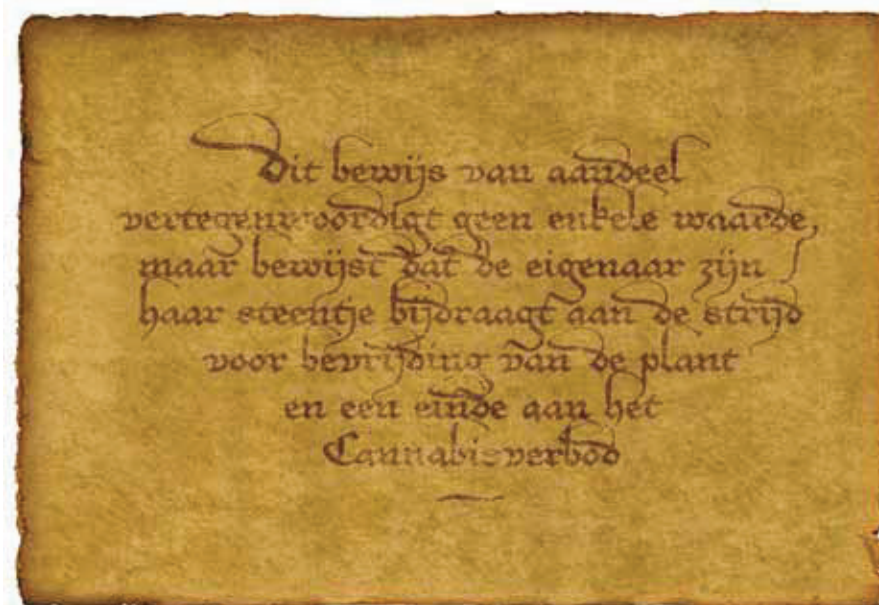 Dit bewijs van aandeel
vertegenwoordigt geen enkele waarde,
maar bewijst dat de eigenaar zijn /
haar steentje bijdraagt aan de strijd
voor bevrijding van de plant
en een einde aan het
Cannabisverbod